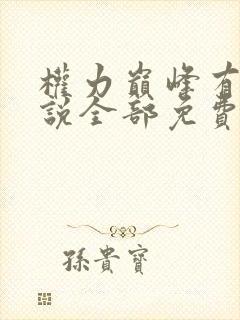 權力巔峰有
說全部免費
孫貴寶